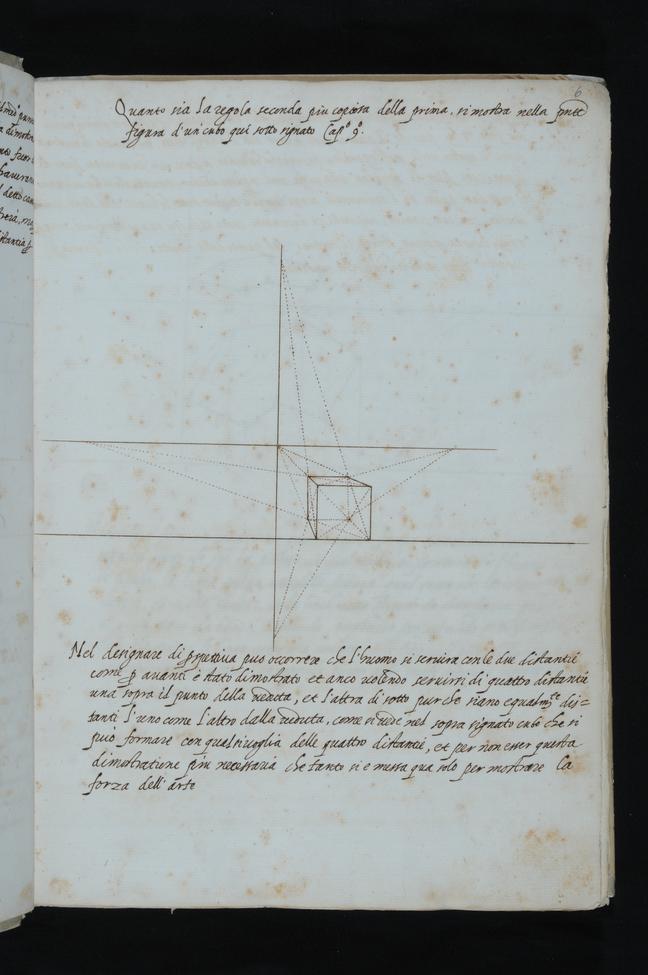 6
Quanto sia la regola seconda piu copiosa della prima, si mostra nella pnte
figura d'un cubo qui sotto signato Capº 9º.
Nel designare di prspettiva puo occorrere che l'huomo si servira con le due distantie
come p avanti è stato dimostrato et anco volendo servirsi di quattro distantie
una sopra il punto della veduta, et l'altra di sotto purche siano equalmte dis=
tanti l'uno come l'altro dalla veduta, come si vede nel sopra signato cubo che si
puo formare con qualsivoglia delle quattro distantie, et per non esser questa
dimostratione piu necessaria che tanto si e messa qua solo per mostrare la
forza dell'arte